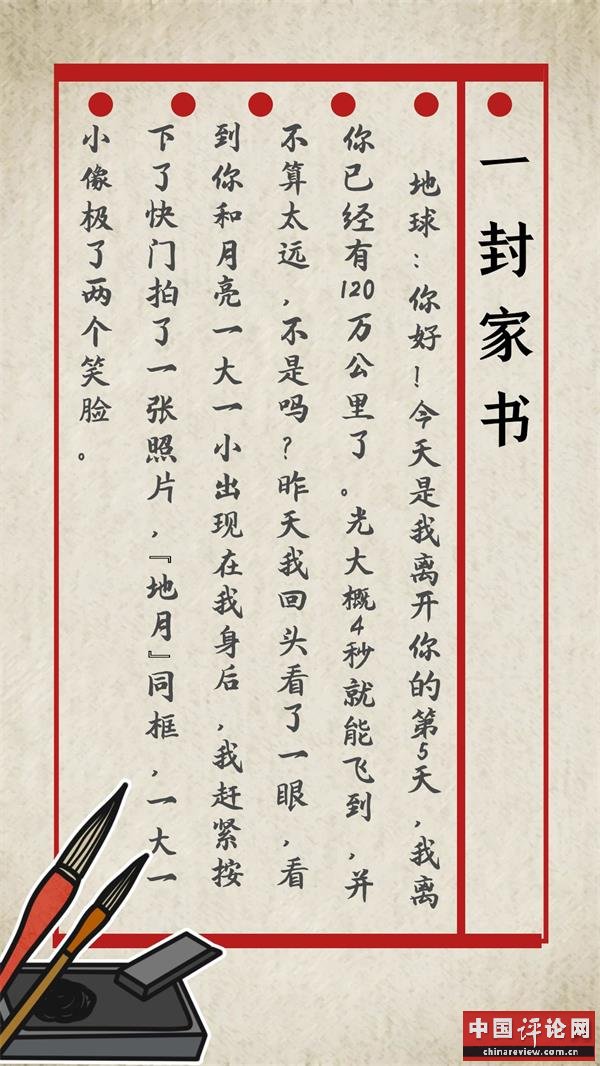 一封家书
地球：你好！今天是我离开你的第5天，我离
你已经有120万公里了。光大概4秒就能飞到，并
不算太远，不是吗？昨天我回头看了一眼，看
到你和月亮一大一小出现在我身后，我赶紧按
下了快门拍了一张照片，『地月』同框，一大一
小像极了两个笑脸。
中国评论网
chinareview.com.cn